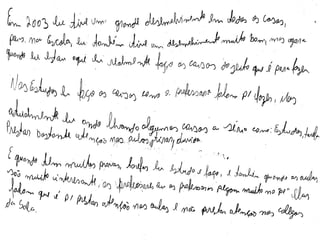 Em 2003 eu tive um grande desenvolvimento em todas as coisas,
pois na Escola eu também tive um desenvolvimento muito bom, mas agora
quando eu estou aqui eu realmente faço as coisas do jeito que é para fazer
Nos Estudos eu faço as coisas como o professor falam p/ fazer, Mas
atualmente eu ando levando algumas coisas a sério como: Estudos,
Prestar bastante atenção nas aulas,
E quando tem muitas provas, eu estudo e faço, e também quando as aulas
são muito interessante, os professores, as professoras pegam muito no pé. Elas
falam que é p/ prestar atenção nas aulas e não prestar atenção nos colegas
da Sala.